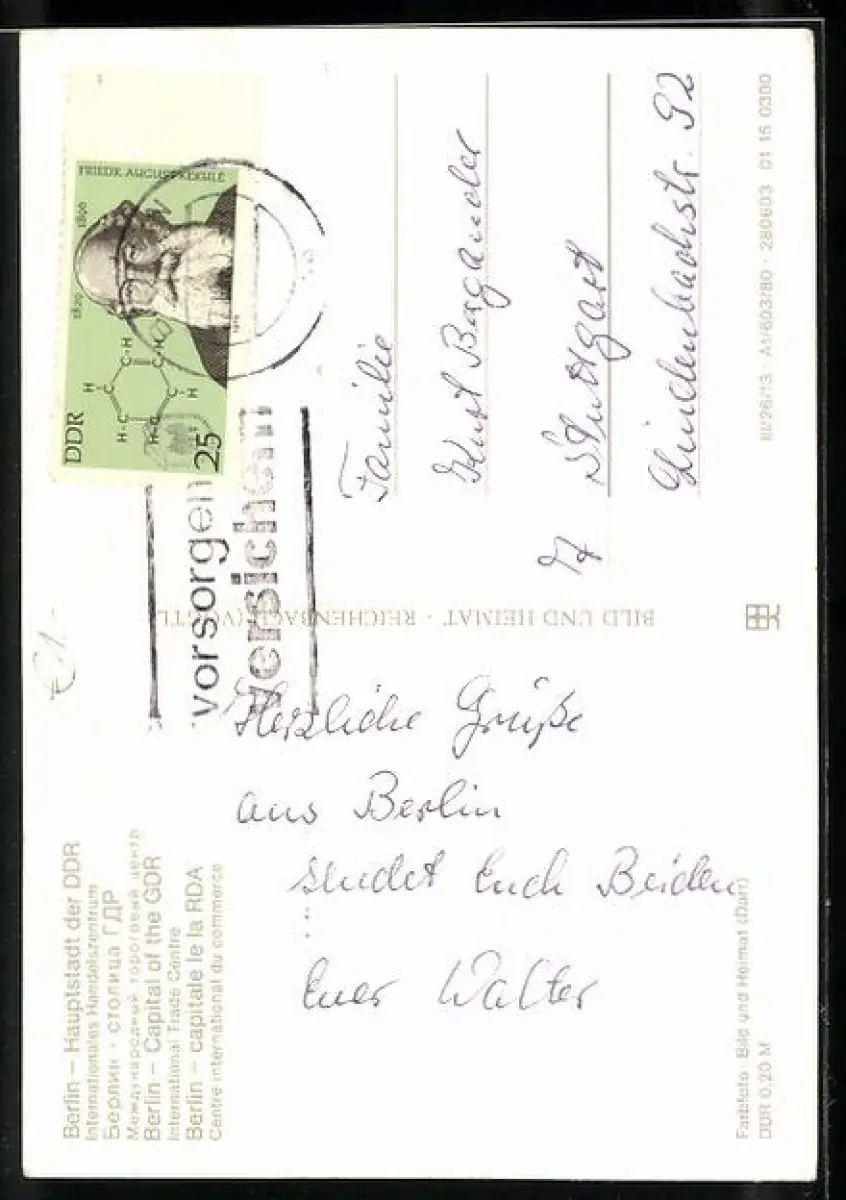 Berlin – Hauptstadt der DDR
Internationales Handelszentrum
Берлин · столица ГДР
Международный торговый центр
Berlin – Capital of the GDR
International Trade Centre
Berlin – capitale le la RDA
Centre international du commerce
Herzliche Grüße
aus Berlin
sendet Euch Beiden
Euer Walter
Farbfoto: Bild und Heimat (Darr)
DDR 0,20 M
BILD UND HEIMAT · REICHENBACH (VOGTL
€ 1.-
vorsorgen
versichern
FRIEDR. AUGUST KEKULÉ
1829 1896
DDR
25
H-C
C-H
H
C
C
H
H-C
C-H
Familie
Kurt Bergander
Stuttgart
Lindenbachstr. 92
III/26/13 · A1/603/80 · 280603 01 15 0300